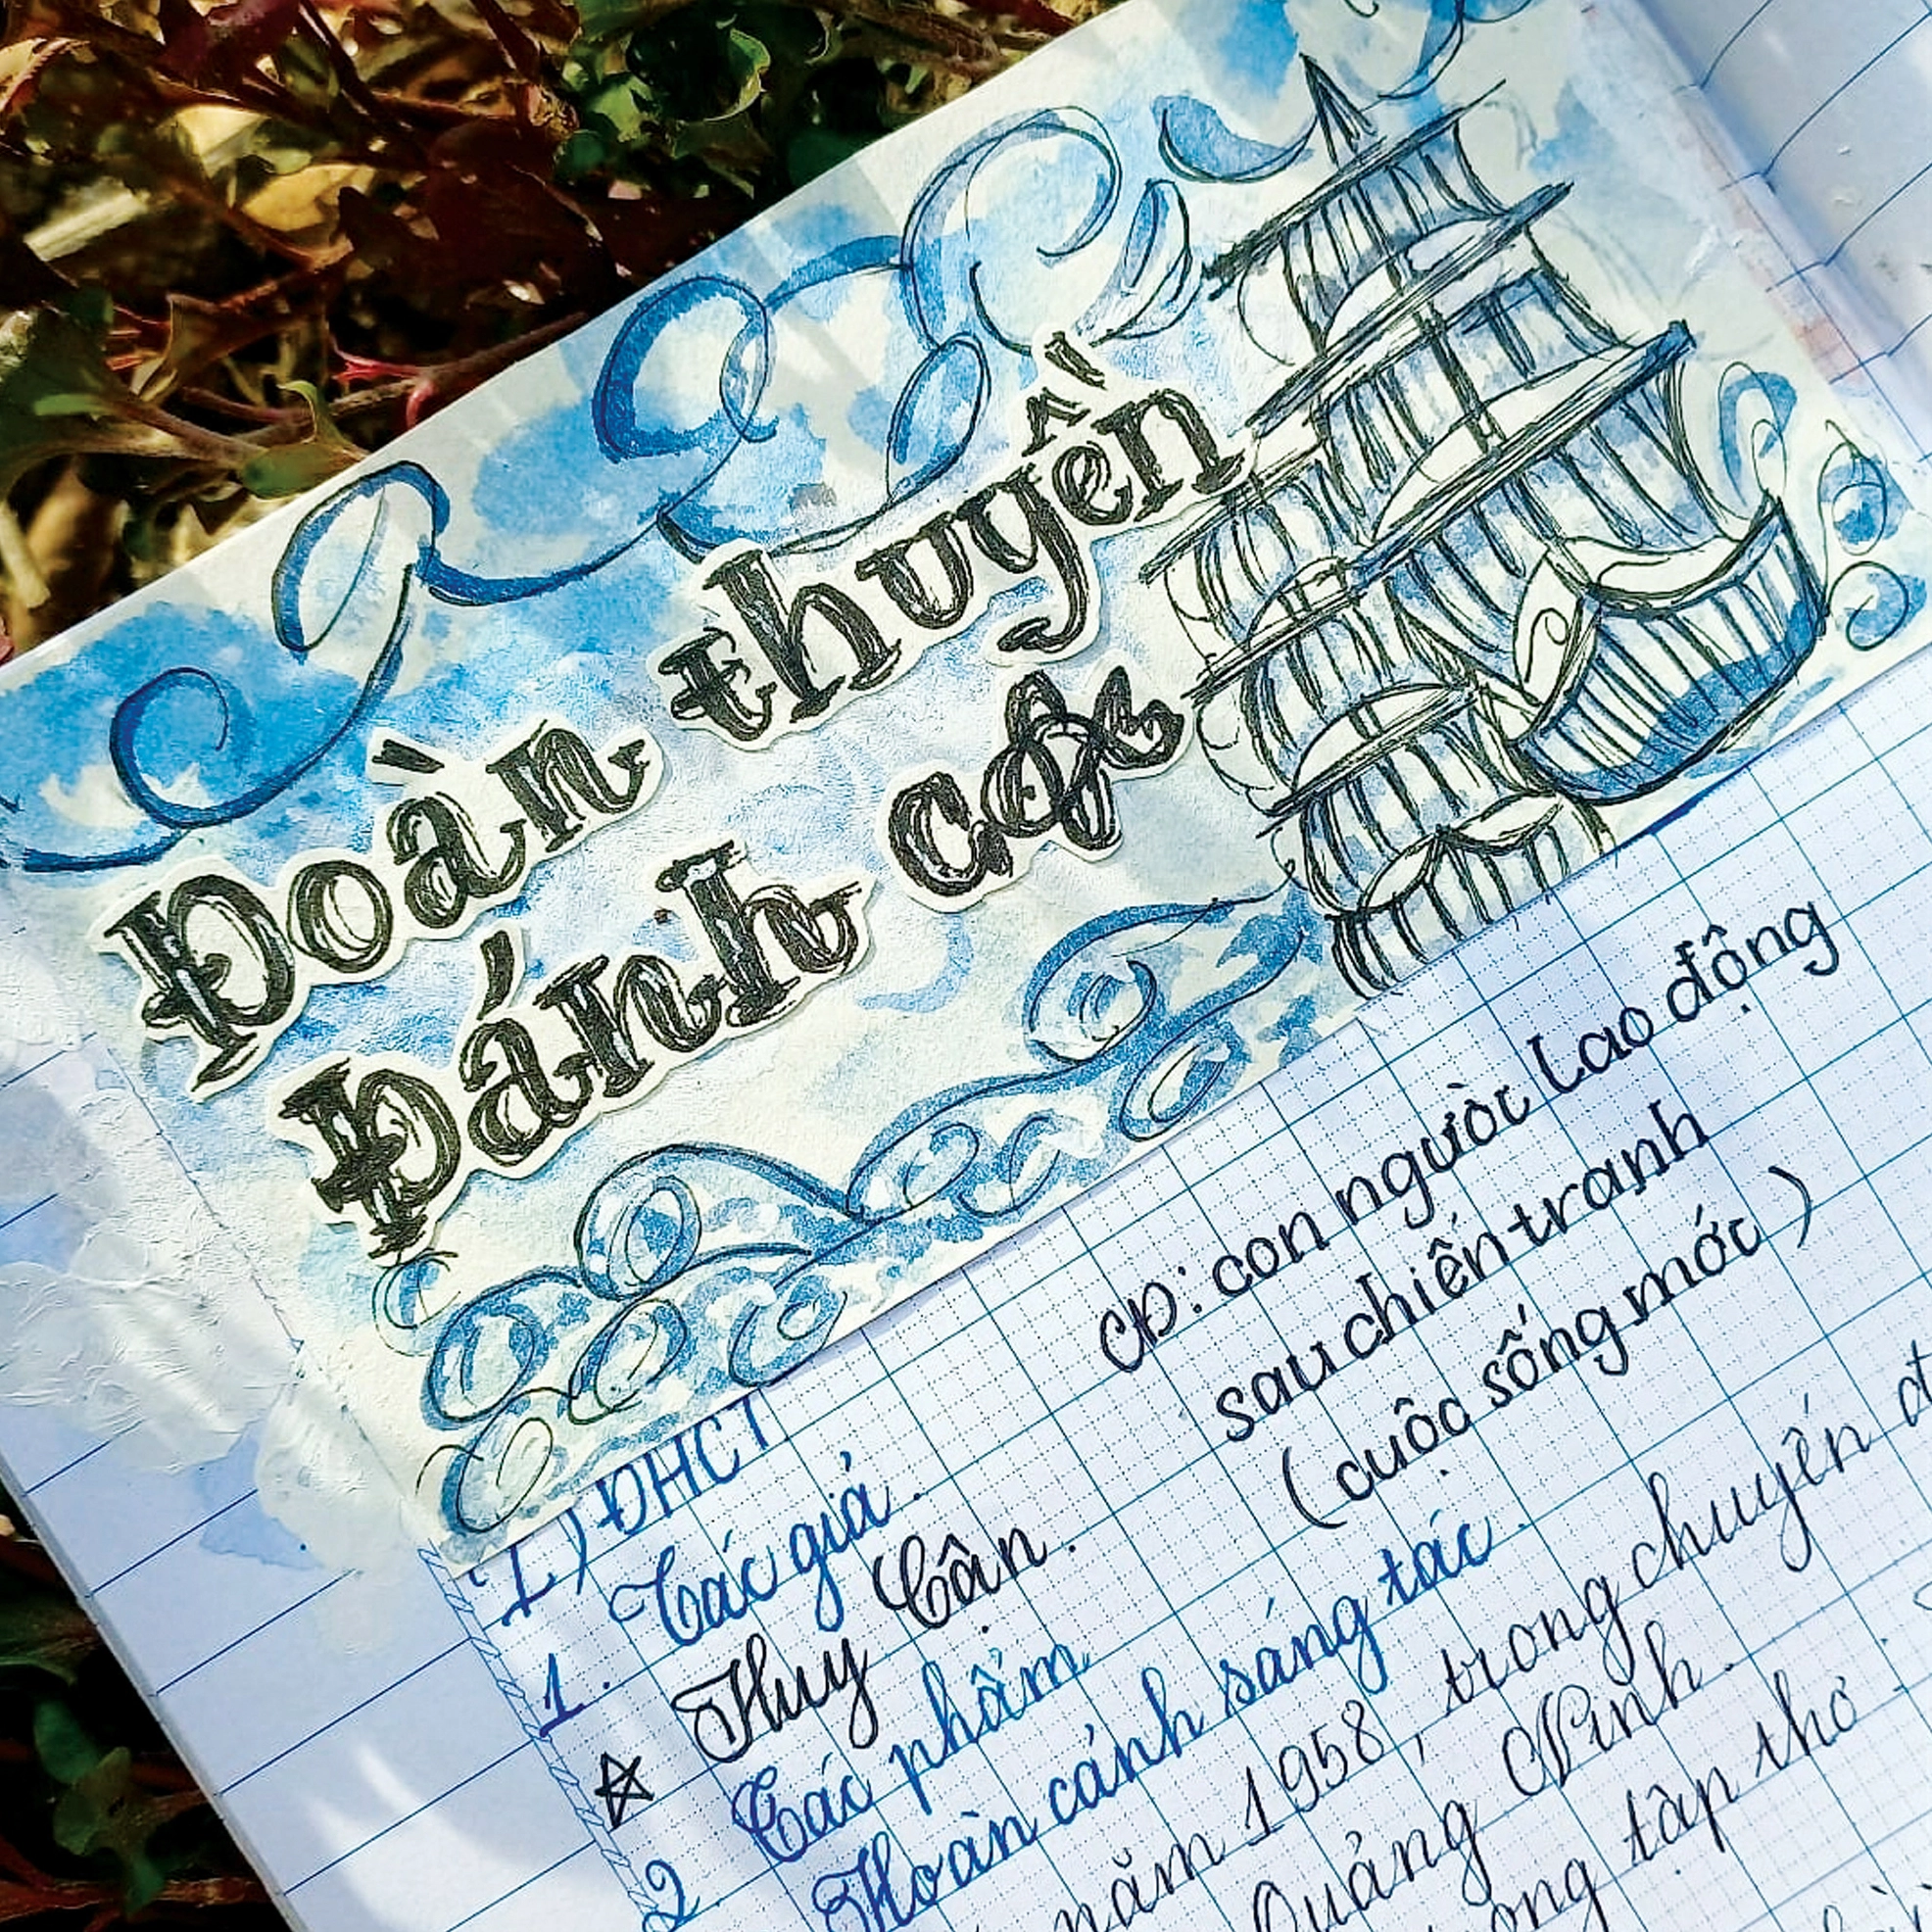 Đoàn thuyền
Đánh cá
CĐ: con người lao động
sau chiến tranh
(cuộc sống mới)
I) ĐHCT
1. Tác giả.
Huy Cận.
2. Tác phẩm
Hoàn cảnh sáng tác.
năm 1958, trong chuyến đ
Quảng Ninh.
tập thơ